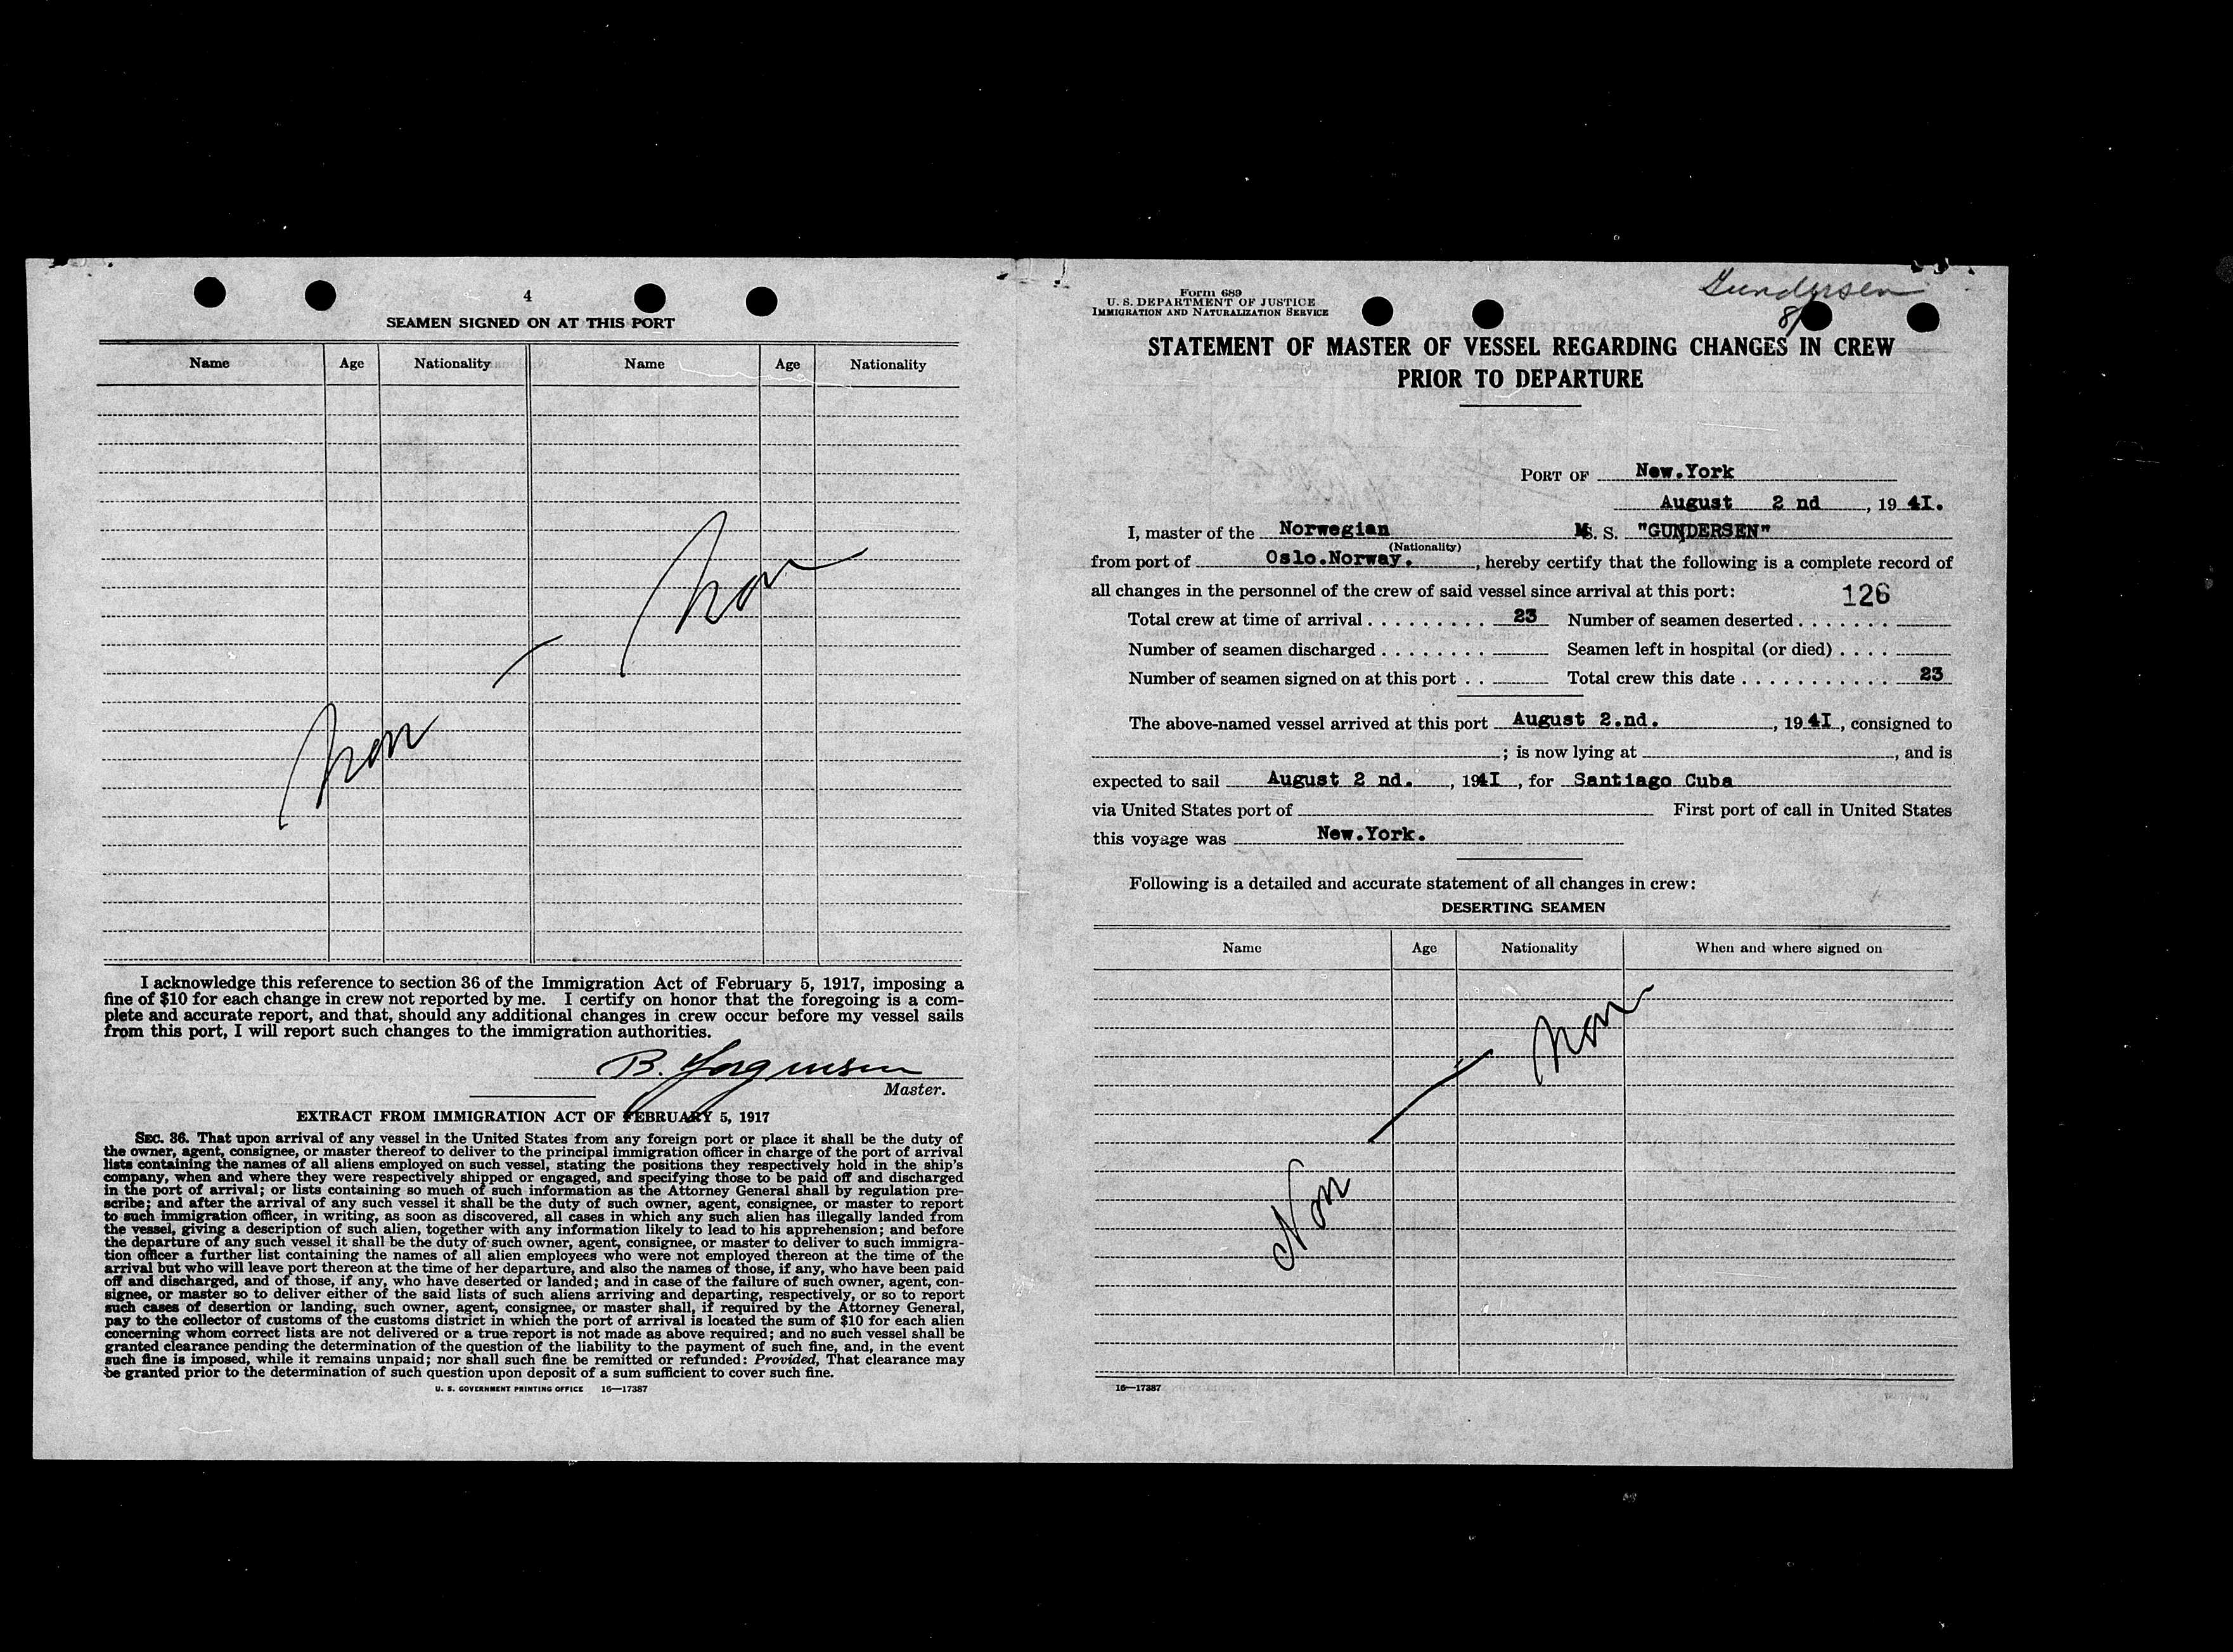 4
SEAMEN SIGNED ON AT THIS PORT
Name Age Nationality Name Age Nationality
Non — Non
I acknowledge this reference to section 36 of the Immigration Act of February 5, 1917, imposing a
fine of $10 for each change in crew not reported by me. I certify on honor that the foregoing is a com-
plete and accurate report, and that, should any additional changes in crew occur before my vessel sails
from this port, I will report such changes to the immigration authorities.
B. Jorgensen
Master.
EXTRACT FROM IMMIGRATION ACT OF FEBRUARY 5, 1917
SEC. 36. That upon arrival of any vessel in the United States from any foreign port or place it shall be the duty of
the owner, agent, consignee, or master thereof to deliver to the principal immigration officer in charge of the port of arrival
lists containing the names of all aliens employed on such vessel, stating the positions they respectively hold in the ship's
company, when and where they were respectively shipped or engaged, and specifying those to be paid off and discharged
in the port of arrival; or lists containing so much of such information as the Attorney General shall by regulation pre-
scribe; and after the arrival of any such vessel it shall be the duty of such owner, agent, consignee, or master to report
to such immigration officer, in writing, as soon as discovered, all cases in which any such alien has illegally landed from
the vessel, giving a description of such alien, together with any information likely to lead to his apprehension; and before
the departure of any such vessel it shall be the duty of such owner, agent, consignee, or master to deliver to such immigra-
tion officer a further list containing the names of all alien employees who were not employed thereon at the time of the
arrival but who will leave port thereon at the time of her departure, and also the names of those, if any, who have been paid
off and discharged, and of those, if any, who have deserted or landed; and in case of the failure of such owner, agent, con-
signee, or master so to deliver either of the said lists of such aliens arriving and departing, respectively, or so to report
such cases of desertion or landing, such owner, agent, consignee, or master shall, if required by the Attorney General,
pay to the collector of customs of the customs district in which the port of arrival is located the sum of $10 for each alien
concerning whom correct lists are not delivered or a true report is not made as above required; and no such vessel shall be
granted clearance pending the determination of the question of the liability to the payment of such fine, and, in the event
such fine is imposed, while it remains unpaid; nor shall such fine be remitted or refunded: Provided, That clearance may
be granted prior to the determination of such question upon deposit of a sum sufficient to cover such fine.
U. S. GOVERNMENT PRINTING OFFICE 16—17387
Gundersen
8/
Form 689
U. S. DEPARTMENT OF JUSTICE
IMMIGRATION AND NATURALIZATION SERVICE
STATEMENT OF MASTER OF VESSEL REGARDING CHANGES IN CREW
PRIOR TO DEPARTURE
PORT OF New.York
August 2 nd, 19 4I.
I, master of the Norwegian M. S. "GUNDERSEN"
(Nationality)
from port of Oslo.Norway., hereby certify that the following is a complete record of
all changes in the personnel of the crew of said vessel since arrival at this port:
126
Total crew at time of arrival . . . . . . . . . 23 Number of seamen deserted . . . . . . .
Number of seamen discharged . . . . . . . . Seamen left in hospital (or died) . . . .
Number of seamen signed on at this port . . Total crew this date . . . . . . . . . . . 23
The above-named vessel arrived at this port August 2.nd., 19 4I, consigned to
; is now lying at , and is
expected to sail August 2 nd., 194I, for Santiago Cuba
via United States port of First port of call in United States
this voyage was New.York.
Following is a detailed and accurate statement of all changes in crew:
DESERTING SEAMEN
Name Age Nationality When and where signed on
Non — Non
16—17387